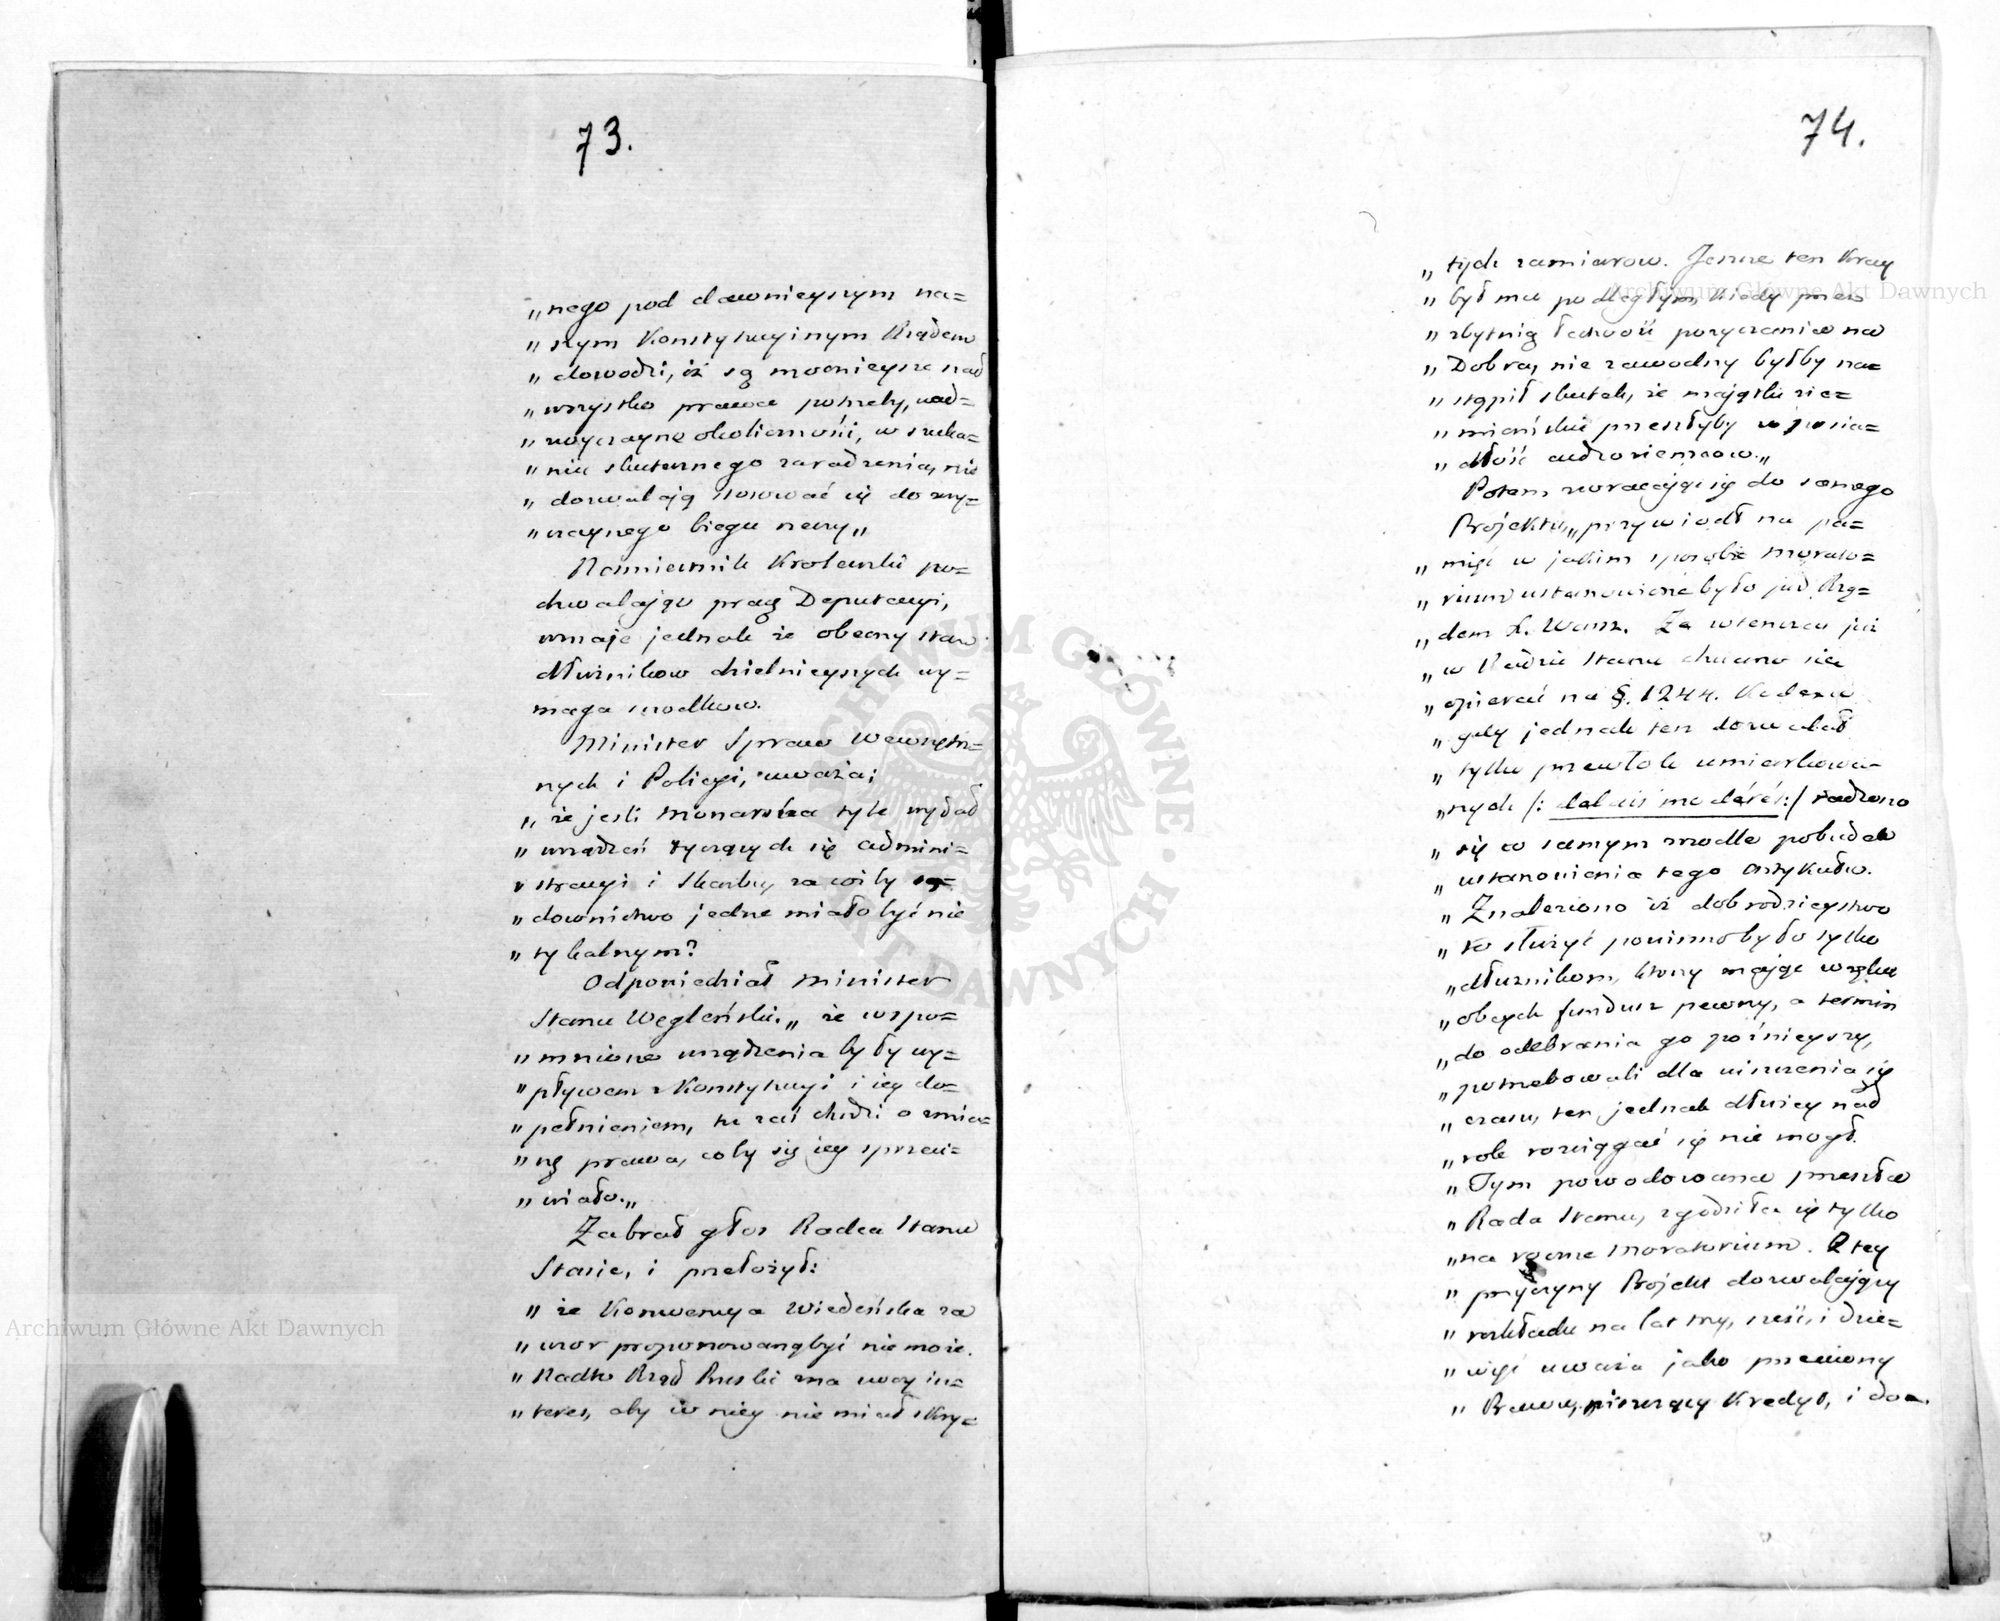 73.
„nego pod dawnieyszym na=
„szym Konstytucyinym Rządem
„dowodzi, iż są mocnieysze nad
„wszystko prawa potrzeby, nad=
„zwyczayne okoliczności, w szuka=
„niu skutecznego zaradzenia, nie
„dozwalają stosować się do zwy=
„czaynego biegu rzeczy„
Namiestnik Krolewski po=
chwalaiąc pracę Deputacyi,
uznaje jednak że obecny stan
dłużnikow dzielnieyszych wy=
maga srodkow.
Minister Spraw Wewnętrz=
nych i Policyi, uważa;
„że jesli Monarcha tyle wydał
„urządzeń tyczących się admini=
„stracyi i Skarbu, za coż by są=
„downictwo jedne miało być nie
„tykalnym?
Odpowiedział Minister
Stanu Węgleński„ że wspo=
„mnione urządzenia były wy=
„pływem z Konstytucyi i iey do=
„pełnieniem, tu zaś chodzi o zmia=
„nę prawa, coby się iey sprzeci=
„wiało„
Zabrał głos Radca Stanu
Stasic, i przełożył:
„że Konwencya Wiedeńska za
„wzor proponowaną być nie może.
„Nadto Rząd Pruski ma swoy in=
„teres, aby w niey nie miał skry=
74.
„tych zamiarow. Jeszcze ten Kray
„był mu podległym, kiedy przez
„zbytnią łatwość pożyczania na
„Dobra, nie zawodny byłby na=
„stąpił skutek, że majątki zie=
„miańskie przeszłyby w posia=
„dłość cudzoziemcow„
Potem zwracając się do samego
Projektu, „przywiodł na pa=
„mięć w jakim sposobie morato=
„rium ustanowione było pod Rzą=
„dem X. Warsz. Za wtenczas już
„w Radzie Stanu chciano się
„opierać na §. 1244. Kodexu
„gdy jednak ten dozwalał
„tylko przewłok umiarkowa=
„nych /: delais moderés :/ radzono
„się w samym zrodle pobudek
„ustanowienia tego Artykułu.
„Znaleziono iż dobrodzieystwo
„to służyć powinno było tylko
„dłużnikom, ktorzy mając w ręku
„obcych fundusz pewny, a termin
„do odebrania go pożnieyszy,
„potrzebowali dla uiszczenia się
„czasu, ten jednak dłużey nad
„rok rozciągać się nie mogł.
„Tym powodowana przeszła
„Rada Stanu, zgodziła się tylko
„na roczne moratorium. Z tey
„przyczyny Projekt dozwalający
„rozkładu na lat trzy, sześć, i dzie=
„więć uważa jako przeciwny
„Prawu, niszczący Kredyt, i do=
Archiwum Główne Akt Dawnych
Archiwum Główne Akt Dawnych
ARCHIWUM GŁÓWNE AKT DAWNYCH